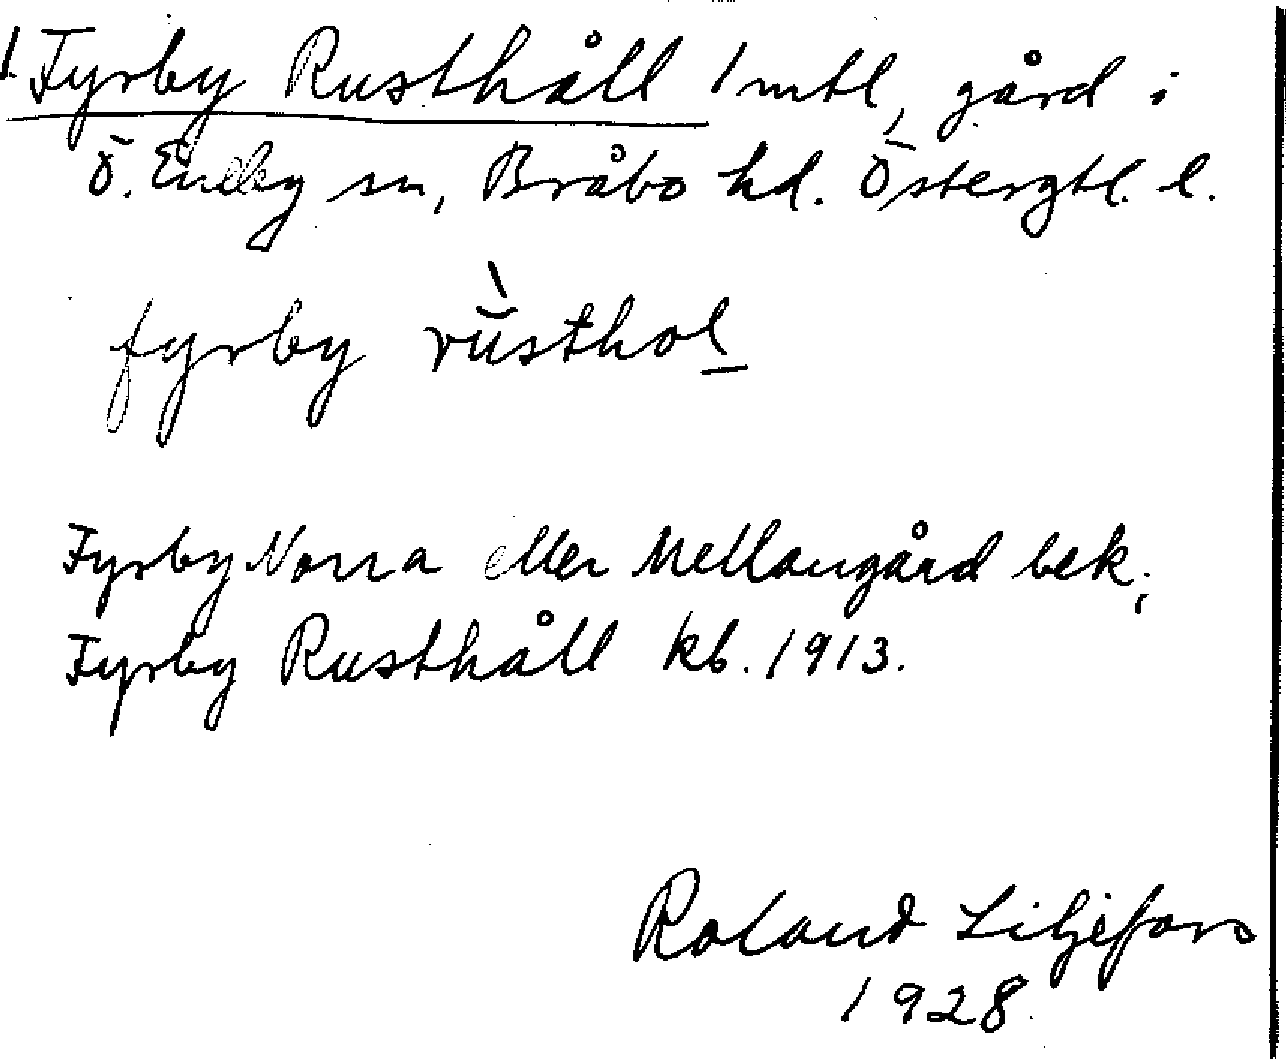 1 Fyrby Rusthåll 1 mtl, gård i
Ö. Eneby sn, Bråbo hd. Östergtl. l.
fyrby rù̆sthol̲
Fyrby Norra eller Mellangård bek;
Fyrby Rusthåll kb. 1913.
Roland Liljefors
1928